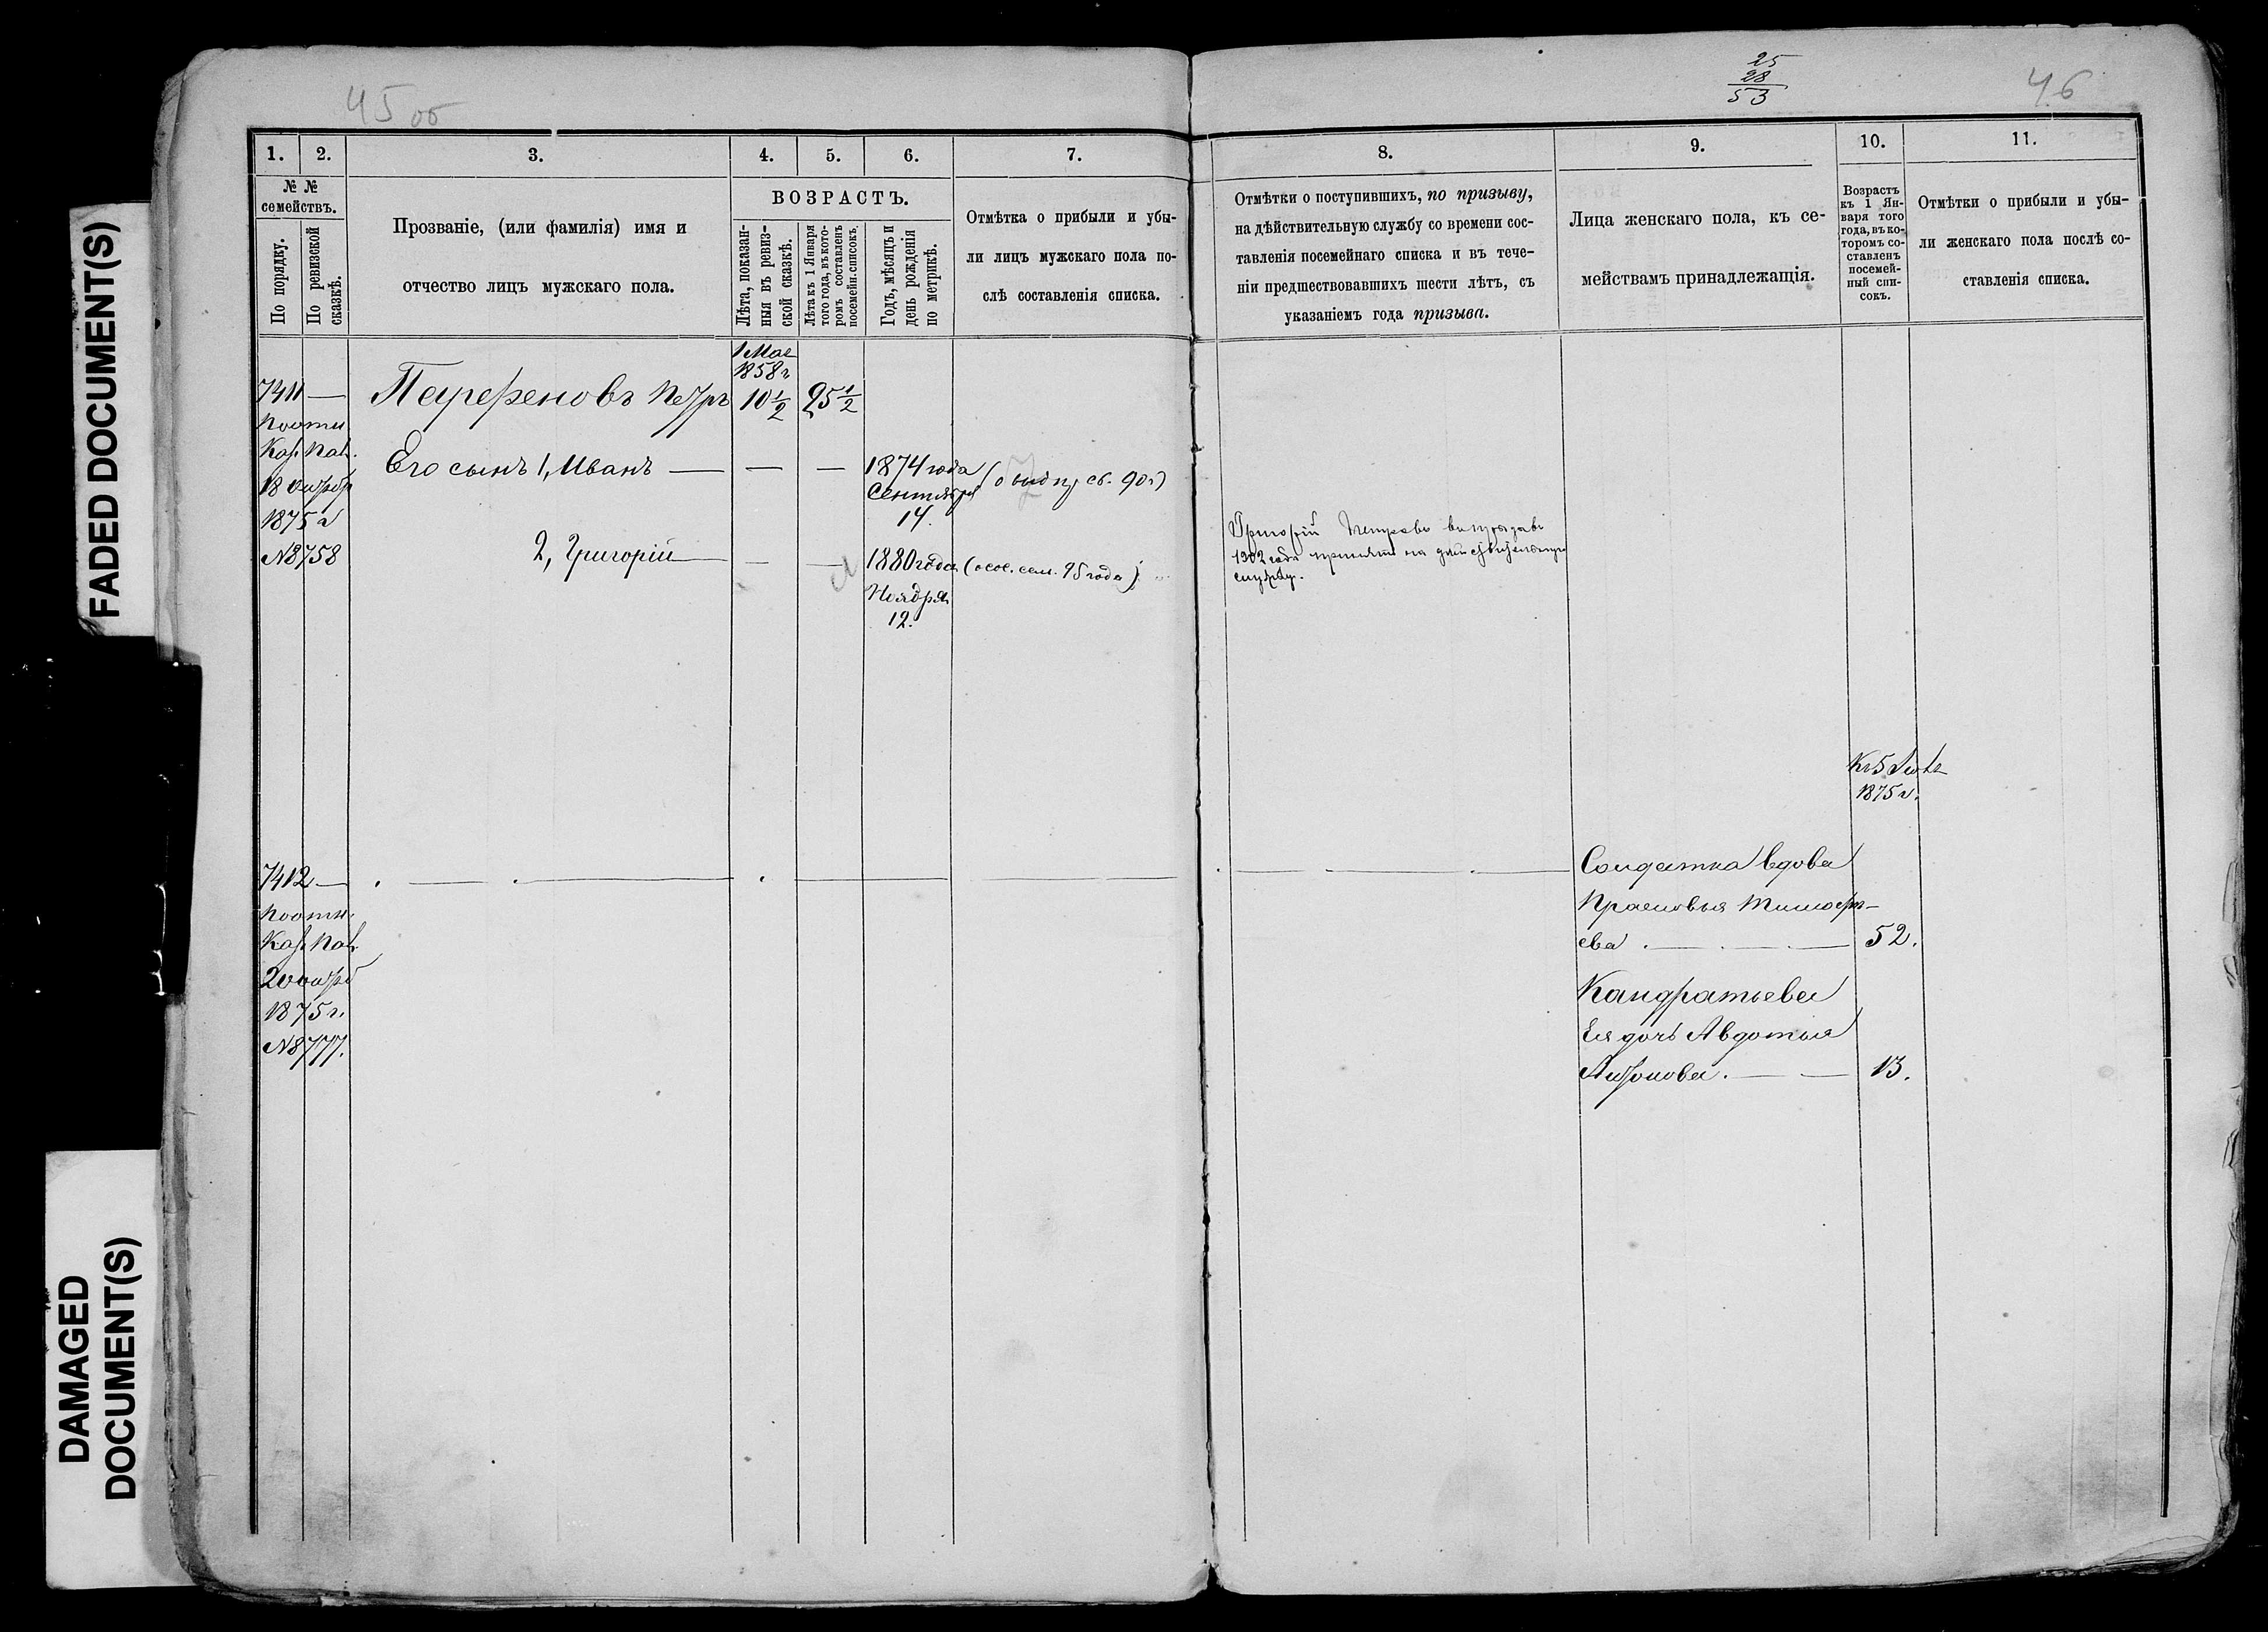 FADED DOCUMENT(S)
DAMAGED
DOCUMENT(S)
45 об
1.
2.
3.
4.
5.
6.
7.
№ №
семействъ.
По порядку.
По ревизской
сказкѣ.
Прозваніе, (или фамилія) имя и
отчество лицъ мужскаго пола.
ВОЗРАСТЪ.
Лѣта, показан-
ныя въ ревиз-
ской сказкѣ.
Лѣта къ 1 Января
того года, въ кото-
ромъ составленъ
посемейн. списокъ.
Годъ, мѣсяцъ и
день рожденія
по метрикѣ.
Отмѣтка о прибыли и убы-
ли лицъ мужскаго пола по-
слѣ составленія списка.
1 Мае
1858 г
7411 — Парфеновъ Петръ 10½ 25½
Каз. Пал.
18
1875 г
№ 8758
Его сынъ 1, Иванъ — — — 1874 года
Сентября
14.
90 г)
2, Григорій — — — 1880 года (особ. сем. 95 года)
Ноября
12.
7412 —
Каз. Пал.
20
1875 г.
№ 8777.
25
28
53
46
8.
9.
10.
11.
Отмѣтки о поступившихъ, по призыву,
на дѣйствительную службу со времени сос-
тавленія посемейнаго списка и въ тече-
ніи предшествовавшихъ шести лѣтъ, съ
указаніемъ года призыва.
Лица женскаго пола, къ се-
мействамъ принадлежащія.
Возрастъ
къ 1 Ян-
варя того
года, въ ко-
торомъ со-
ставленъ
посемей-
ный спи-
сокъ.
Отмѣтки о прибыли и убы-
ли женскаго пола послѣ со-
ставленія списка.
Григорій Петровъ
1902 года принятъ на дѣйствительную
службу.
1875 г.
Солдатка вдова
Прасковья Тимофе-
ева — 52.
Кандратьева
Ея дочь Авдотья
— 13.